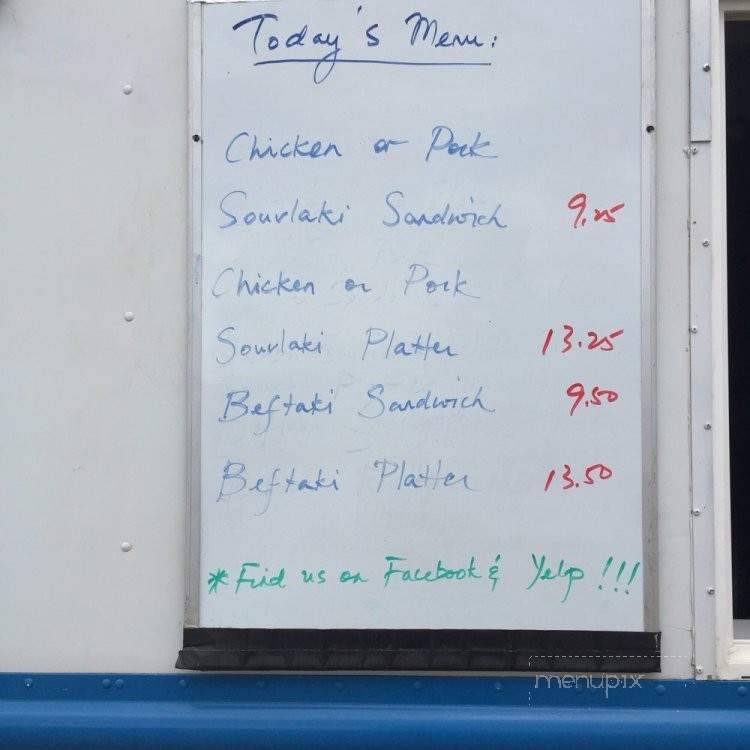 Today's Menu:
Chicken or Pork
Sourlaki Sandwich 9.25
Chicken or Pork
Sourlaki Platter 13.25
Beftaki Sandwich 9.50
Beftaki Platter 13.50
* Find us on Facebook & Yelp !!!
menupix